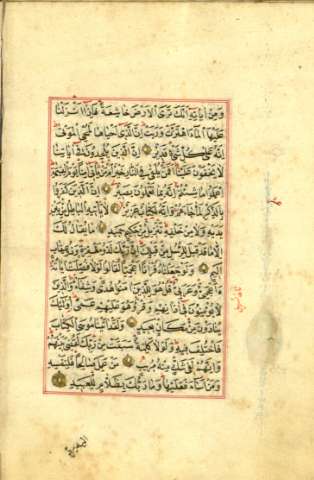 وَمِنْ اٰيَاتِهِ اَنَّكَ تَرَى الْاَرْضَ خَاشِعَةً فَاِذَا اَنْزَلْنَا
عَلَيْهَا الْمَاءَ اهْتَزَّتْ وَرَبَتْ اِنَّ الَّذِي اَحْيَاهَا لَمُحْيِي الْمَوْتَى
اِنَّهُ عَلَى كُلِّ شَيْءٍ قَدِيرٌ اِنَّ الَّذِينَ يُلْحِدُونَ فِي اٰيَاتِنَا
لَا يَخْفَوْنَ عَلَيْنَا اَفَمَنْ يُلْقَى فِي النَّارِ خَيْرٌ اَمْ مَنْ يَأْتِي اٰمِنًا يَوْمَ الْقِيٰمَةِ
اِعْمَلُوا مَا شِئْتُمْ اِنَّهُ بِمَا تَعْمَلُونَ بَصِيرٌ اِنَّ الَّذِينَ كَفَرُوا
بِالذِّكْرِ لَمَّا جَاءَهُمْ وَاِنَّهُ لَكِتَابٌ عَزِيزٌ لَا يَأْتِيهِ الْبَاطِلُ مِنْ بَيْنِ
يَدَيْهِ وَلَا مِنْ خَلْفِهِ تَنْزِيلٌ مِنْ حَكِيمٍ حَمِيدٍ مَا يُقَالُ لَكَ
اِلَّا مَا قَدْ قِيلَ لِلرُّسُلِ مِنْ قَبْلِكَ اِنَّ رَبَّكَ لَذُو مَغْفِرَةٍ وَذُو عِقَابٍ
اَلِيمٍ وَلَوْ جَعَلْنَاهُ قُرْاٰنًا اَعْجَمِيًّا لَقَالُوا لَوْلَا فُصِّلَتْ اٰيَاتُهُ
ءَاَعْجَمِيٌّ وَعَرَبِيٌّ قُلْ هُوَ لِلَّذِينَ اٰمَنُوا هُدًى وَشِفَاءٌ وَالَّذِينَ
لَا يُؤْمِنُونَ فِي اٰذَانِهِمْ وَقْرٌ وَهُوَ عَلَيْهِمْ عَمًى اُولٰئِكَ
يُنَادَوْنَ مِنْ مَكَانٍ بَعِيدٍ وَلَقَدْ اٰتَيْنَا مُوسَى الْكِتَابَ
فَاخْتُلِفَ فِيهِ وَلَوْلَا كَلِمَةٌ سَبَقَتْ مِنْ رَبِّكَ لَقُضِيَ بَيْنَهُمْ
وَاِنَّهُمْ لَفِي شَكٍّ مِنْهُ مُرِيبٍ مَنْ عَمِلَ صَالِحًا فَلِنَفْسِهِ
وَمَنْ اَسَاءَ فَعَلَيْهَا وَمَا رَبُّكَ بِظَلَّامٍ لِلْعَبِيدِ
اليه يرد